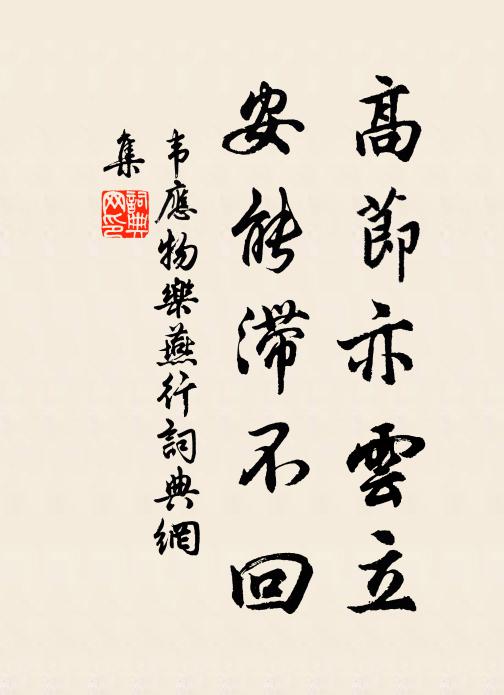 高節亦雲立
安能滯不回
韦應物樂燕行詞典網
集
詞典網印